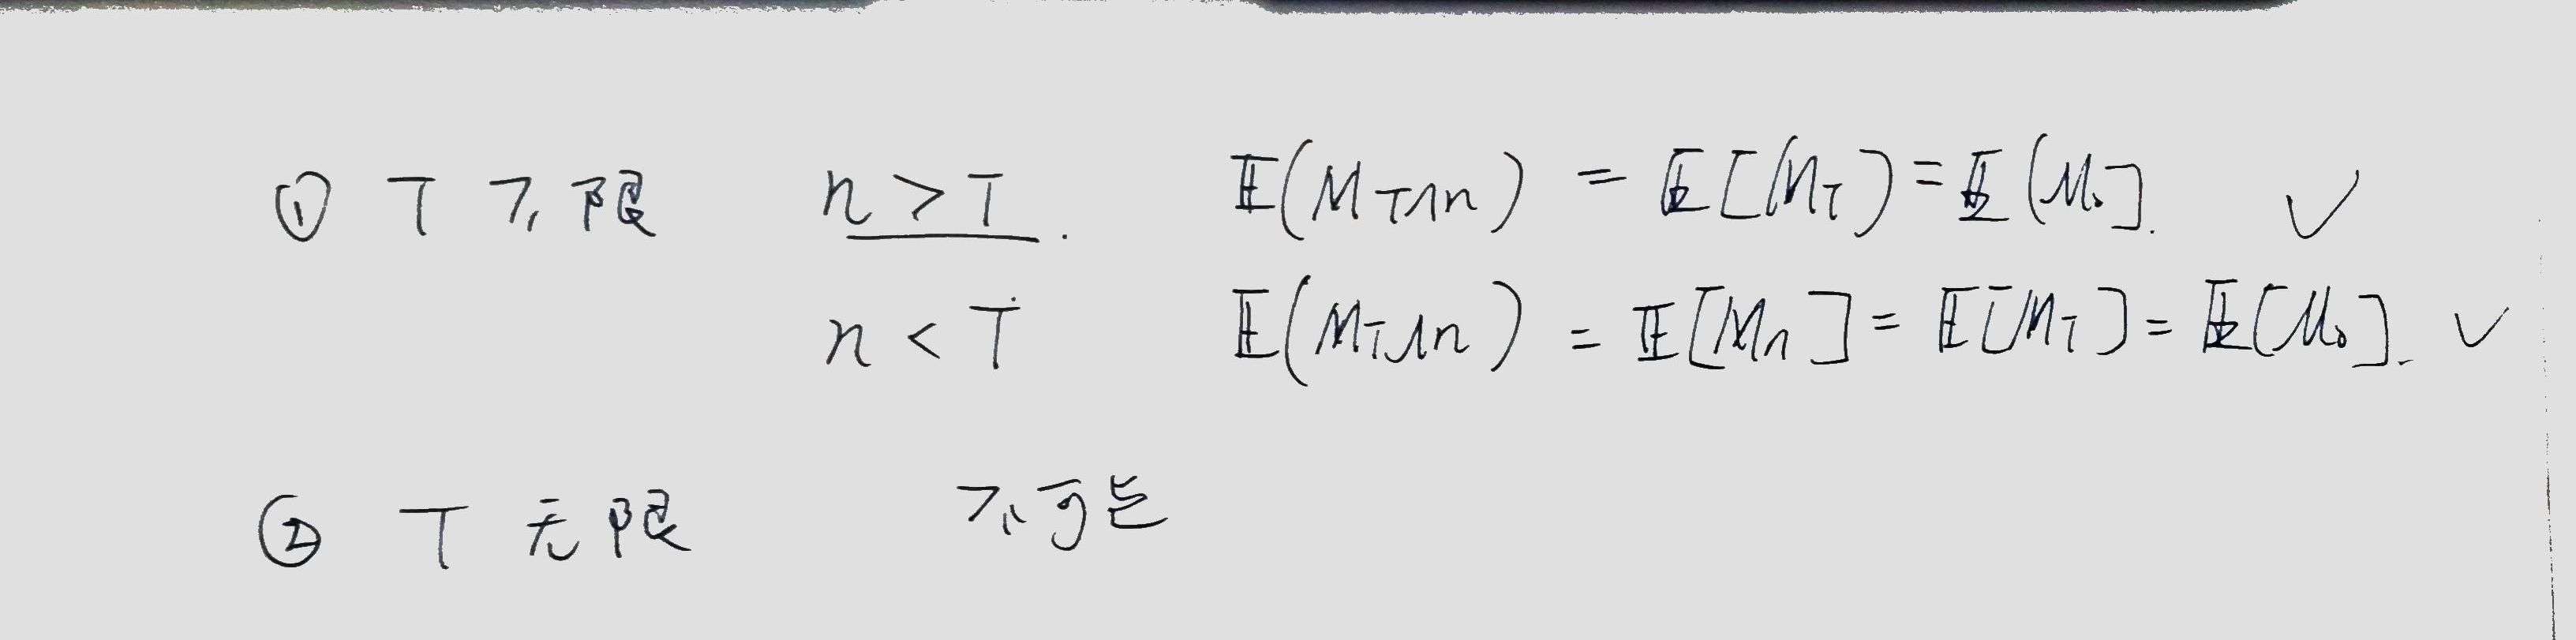 ① T 不限 n > T. 𝔼(M_{T∧n}) = 𝔼[M_T) = 𝔼(M_0]. ✓
n < T 𝔼(M_{T∧n}) = 𝔼[M_n] = 𝔼[M_T] = 𝔼[M_0]. ✓
② T 无限 不可能